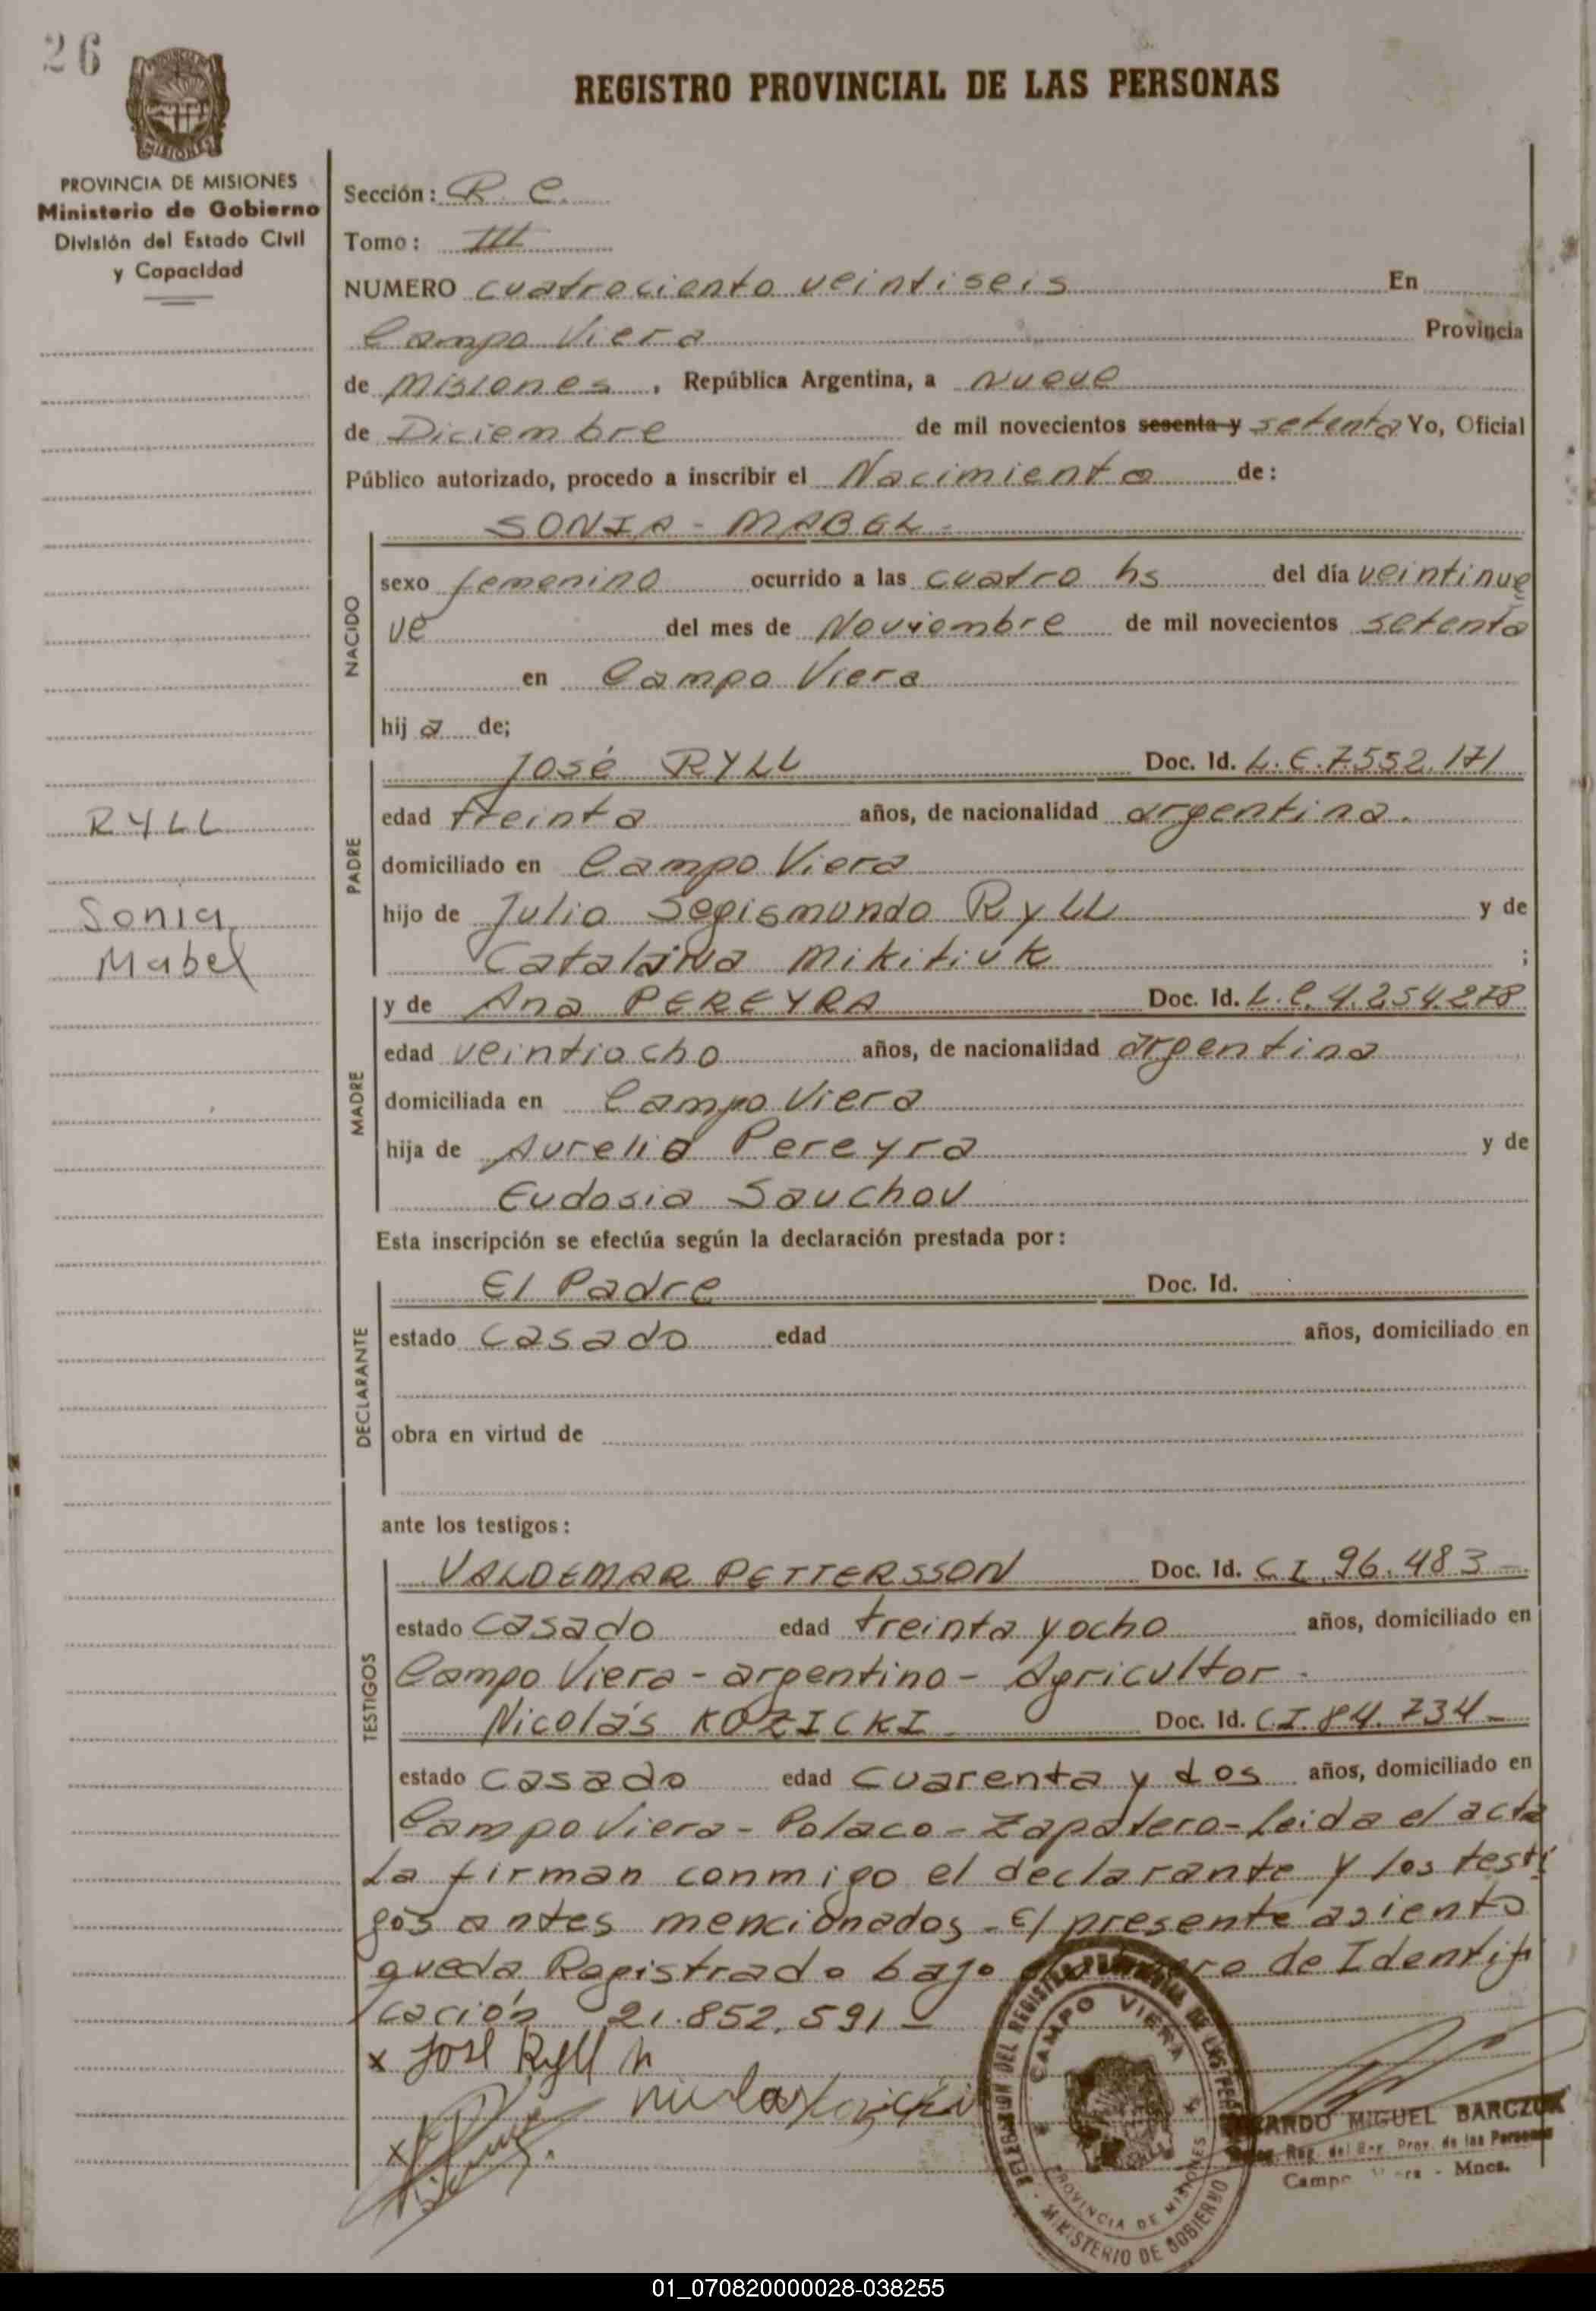 26
REGISTRO PROVINCIAL DE LAS PERSONAS
MISIONES
PROVINCIA DE MISIONES
Ministerio de Gobierno
División del Estado Civil
y Capacidad
Sección: R. C.
Tomo: III
NUMERO cuatrociento veintiseis En
Campo Viera Provincia
de Misiones, República Argentina, a nueve
de Diciembre de mil novecientos sesenta y setenta Yo, Oficial
Público autorizado, procedo a inscribir el Nacimiento de:
SONIA - MABEL -
NACIDO
sexo femenino ocurrido a las cuatro hs del día veintinue
ve del mes de Noviembre de mil novecientos setenta
en Campo Viera
hij a de;
PADRE
José RYLL Doc. Id. L. E. 7.552.171
RYLL
edad treinta años, de nacionalidad argentina.
domiciliado en Campo Viera
Sonia
hijo de Julio Segismundo RyLL y de
Mabel
Catalina Mikitiuk ;
MADRE
y de Ana PEREYRA Doc. Id. L. C. 4.254.278
edad veintiocho años, de nacionalidad argentina
domiciliada en Campo Viera
hija de Aurelio Pereyra y de
Eudosia Sauchov
Esta inscripción se efectúa según la declaración prestada por:
DECLARANTE
El Padre Doc. Id.
estado casado edad años, domiciliado en
obra en virtud de
ante los testigos:
TESTIGOS
VALDEMAR PETTERSSON Doc. Id. C I. 96.483 -
estado casado edad treinta y ocho años, domiciliado en
Campo Viera - argentino - Agricultor -
Nicolás KOZICKI Doc. Id. C.I. 84.734 -
estado casado edad cuarenta y dos años, domiciliado en
Campo Viera - Polaco - Zapatero - Leida el acta
La firman conmigo el declarante y los testi
gos antes mencionados - El presente asiento
queda Registrado bajo de Identifi
cación 21.852.591 -
x José Ryll h
Nicolas Kozicki
CAMPO VIERA
PROVINCIA DE MISIONES
MINISTERIO DE GOBIERNO
MIGUEL BARCZUK
Reg. del Reg. Prov. de las Personas
Campo Viera - Mnes.
01_070820000028-038255